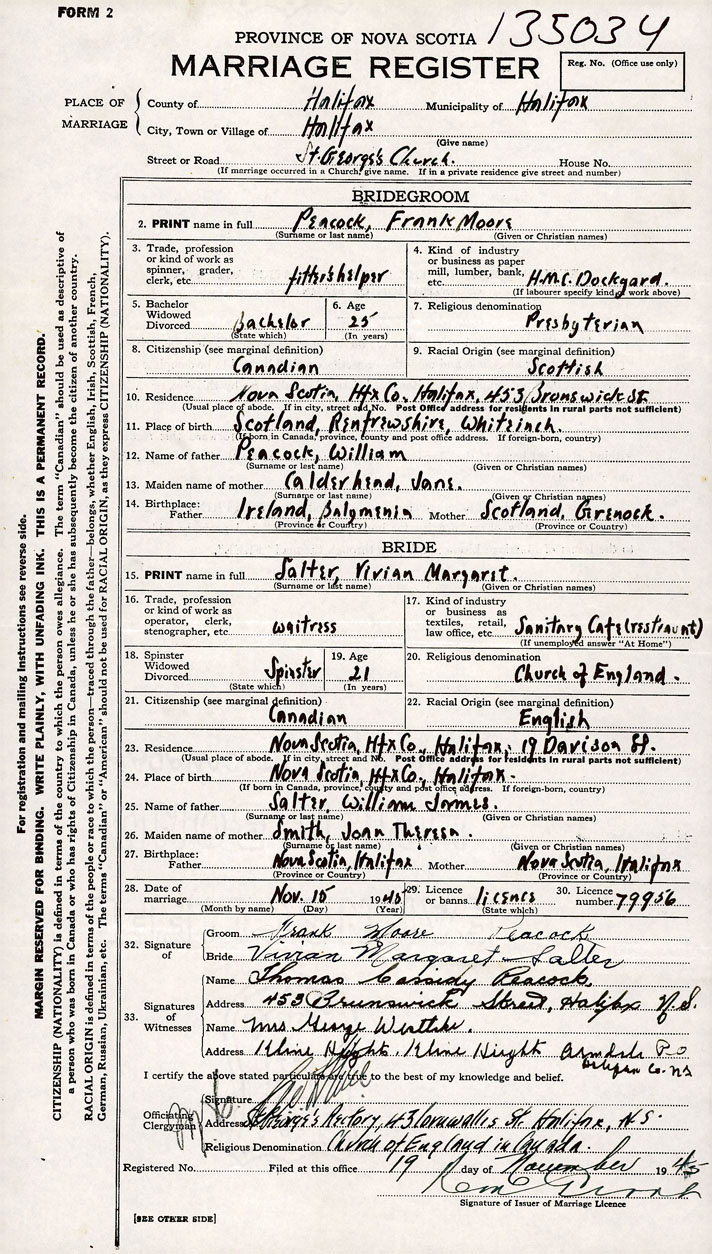 FORM 2
135034
PROVINCE OF NOVA SCOTIA
MARRIAGE REGISTER
Reg. No. (Office use only)
PLACE OF MARRIAGE
County of Halifax Municipality of Halifax
City, Town or Village of Halifax
(Give name)
Street or Road St. George's Church. House No.
(If marriage occurred in a Church, give name. If in a private residence give street and number)
BRIDEGROOM
2. PRINT name in full Peacock, Frank Moore
(Surname or last name) (Given or Christian names)
3. Trade, profession or kind of work as spinner, grader, clerk, etc. fitter's helper
4. Kind of industry or business as paper mill, lumber, bank, etc. H.M.C. Dockyard.
(If labourer specify kind of work above)
5. Bachelor Widowed Divorced Bachelor
(State which)
6. Age 25
(In years)
7. Religious denomination Presbyterian
8. Citizenship (see marginal definition) Canadian
9. Racial Origin (see marginal definition) Scottish
10. Residence Nova Scotia, Hfx Co. Halifax, 453 Brunswick St.
(Usual place of abode. If in city, street and No. Post Office address for residents in rural parts not sufficient)
11. Place of birth Scotland, Renfrewshire, Whiteinch.
(If born in Canada, province, county and post office address. If foreign-born, country)
12. Name of father Peacock, William
(Surname or last name) (Given or Christian names)
13. Maiden name of mother Calderhead, Jane.
(Surname or last name) (Given or Christian names)
14. Birthplace: Father Ireland, Balymenia Mother Scotland, Grenock.
(Province or Country) (Province or Country)
BRIDE
15. PRINT name in full Salter, Vivian Margaret.
(Surname or last name) (Given or Christian names)
16. Trade, profession or kind of work as operator, clerk, stenographer, etc waitress
17. Kind of industry or business as textiles, retail, law office, etc. Sanitary Cafe (restraunt)
(If unemployed answer "At Home")
18. Spinster Widowed Divorced Spinster
(State which)
19. Age 21
(In years)
20. Religious denomination Church of England.
21. Citizenship (see marginal definition) Canadian
22. Racial Origin (see marginal definition) English
23. Residence Nova Scotia, Hfx Co., Halifax, 19 Davison St.
(Usual place of abode. If in city, street and No. Post Office address for residents in rural parts not sufficient)
24. Place of birth Nova Scotia, Hfx Co., Halifax.
(If born in Canada, province, county and post office address. If foreign-born, country)
25. Name of father Salter, William James.
(Surname or last name) (Given or Christian names)
26. Maiden name of mother Smith, Joan Theresa.
(Surname or last name) (Given or Christian names)
27. Birthplace: Father Nova Scotia, Halifax Mother Nova Scotia, Halifax
(Province or Country) (Province or Country)
28. Date of marriage Nov. 15 1940
(Month by name) (Day) (Year)
29. Licence or banns licence
(State which)
30. Licence number 79956
32. Signature of
Groom Frank Moore Peacock
Bride Vivian Margaret Salter
33. Signatures of Witnesses
Name Thomas Cassidy Peacock,
Address 453 Brunswick Street, Halifax N.S.
Name Mrs. George
Address Kline Hights, Kline Hight Armdale P.O
Co. NS
I certify the above stated particulars are true to the best of my knowledge and belief.
Officiating Clergyman
Signature
Address St George's Rectory, 43 Cornwallis St. Halifax, N.S.
Religious Denomination Church of England in Canada.
Registered No. Filed at this office 19 day of November 19
Signature of Issuer of Marriage Licence
[SEE OTHER SIDE]
For registration and mailing instructions see reverse side.
MARGIN RESERVED FOR BINDING. WRITE PLAINLY, WITH UNFADING INK. THIS IS A PERMANENT RECORD.
CITIZENSHIP (NATIONALITY) is defined in terms of the country to which the person owes allegiance. The term "Canadian" should be used as descriptive of
a person who was born in Canada or who has rights of Citizenship in Canada, unless he or she has subsequently become the citizen of another country.
RACIAL ORIGIN is defined in terms of the people or race to which the person—traced through the father—belongs, whether English, Irish, Scottish, French,
German, Russian, Ukrainian, etc. The terms "Canadian" or "American" should not be used for RACIAL ORIGIN, as they express CITIZENSHIP (NATIONALITY).